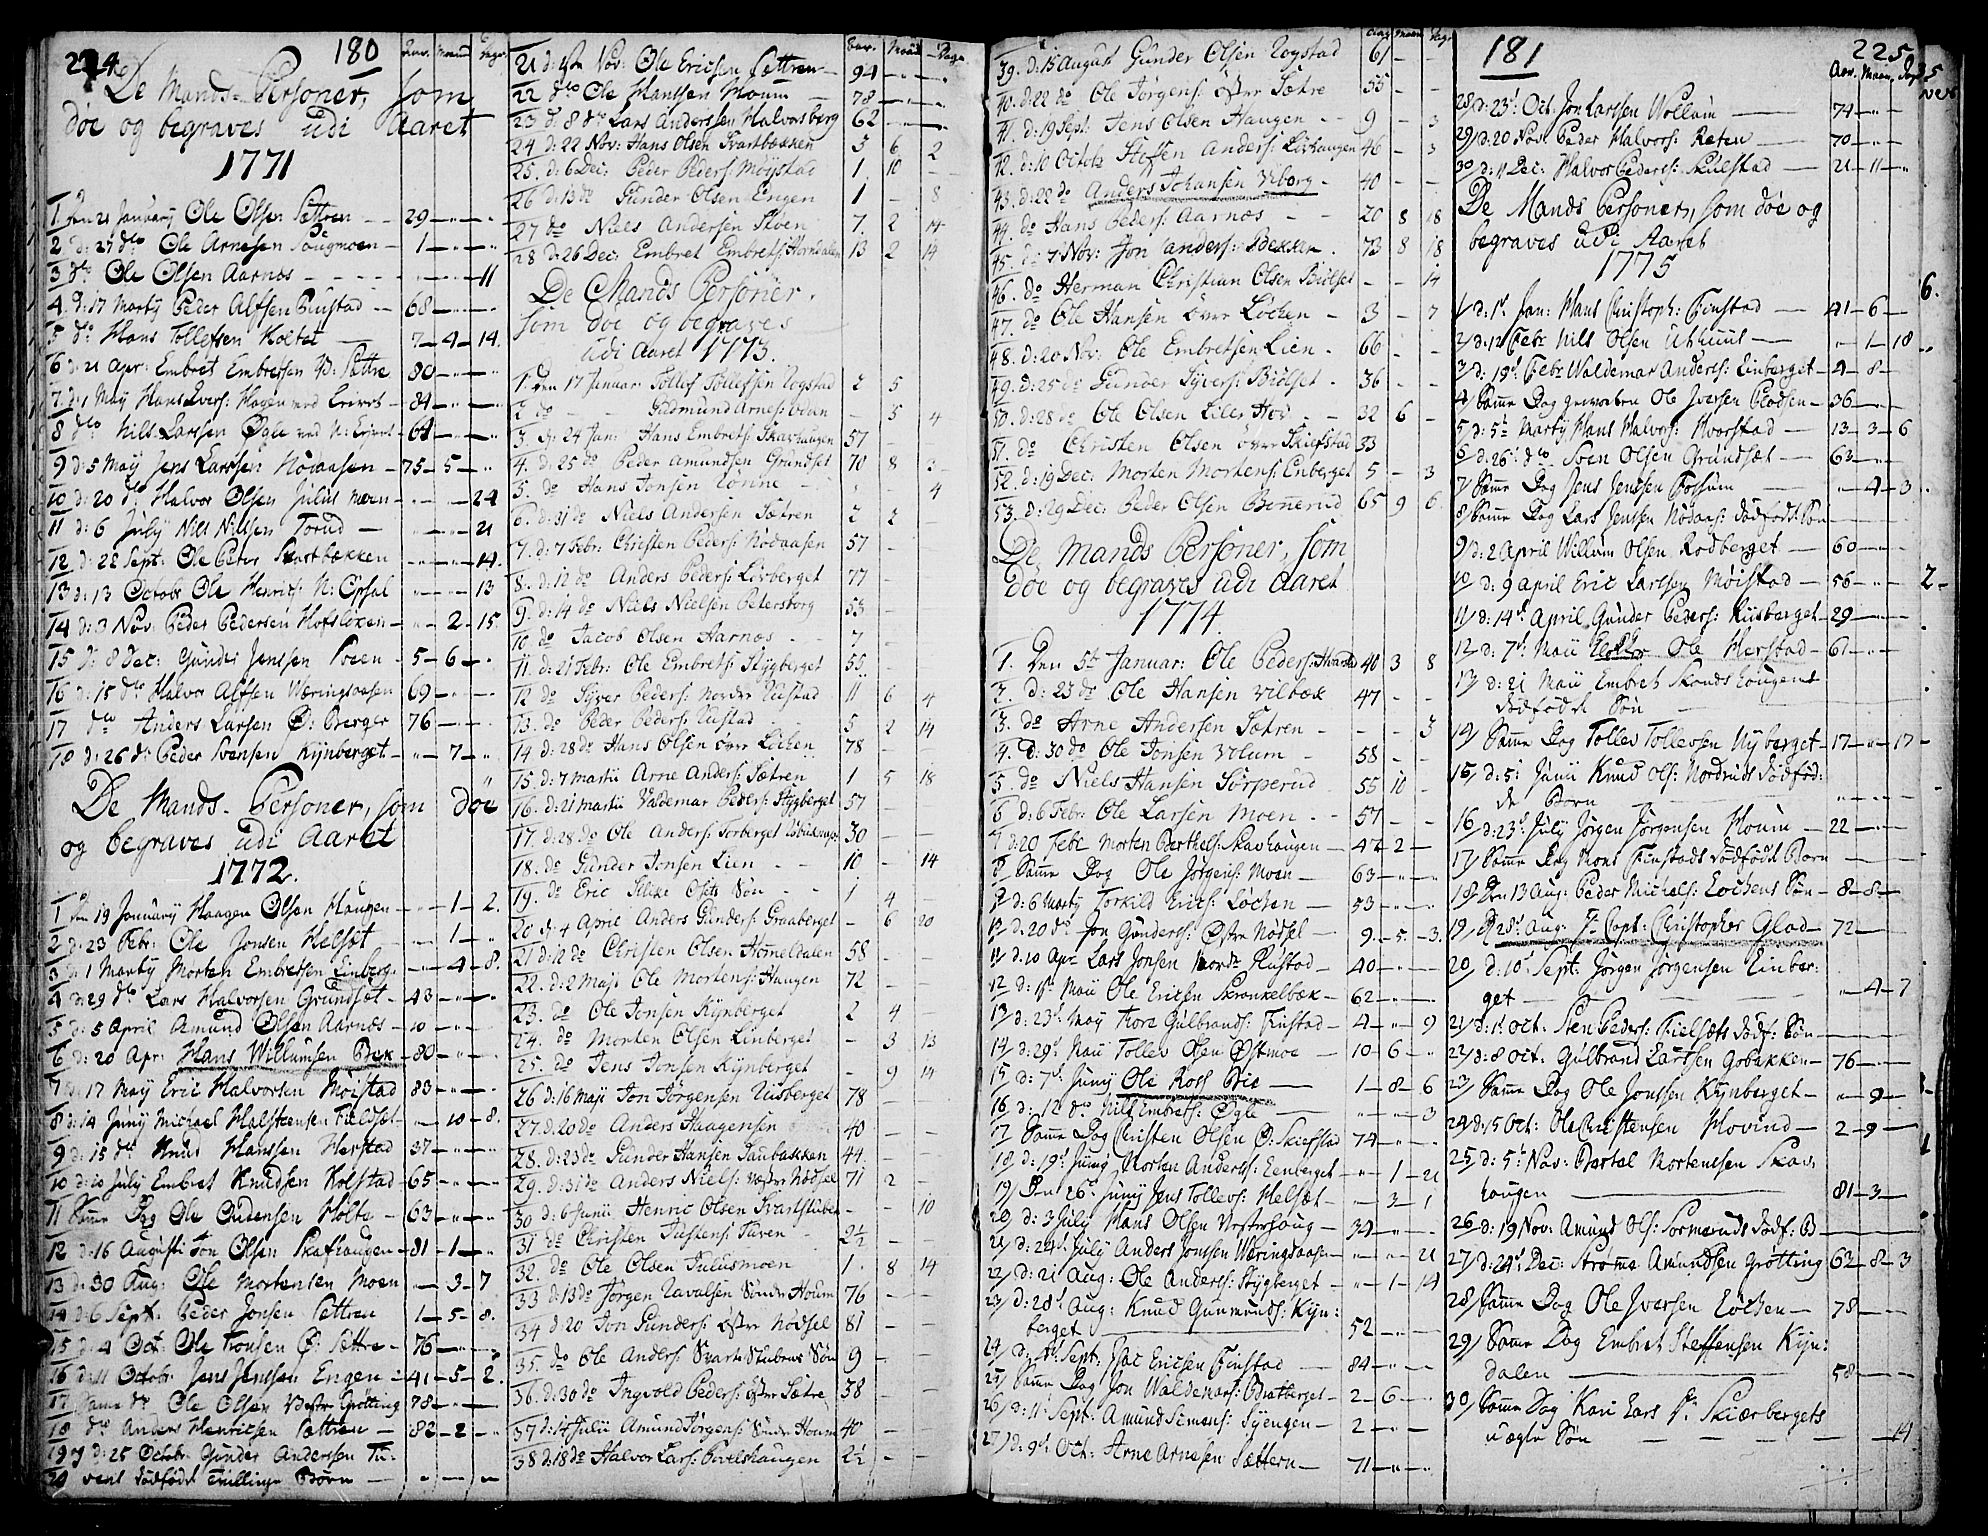 224
180
Aar. Maan. Dage
De Mands-Personer, som
döe og begraves udi Aaret
1771
1 den 21 January Ole Olsen Sættren — 29 — " — "
2 d: 27 dto Ole Arnesen Sougmoen — 1 — " — "
3 dto Ole Olsen Aarnæs — " — " — 11
4 d: 17 Marty Peder Alfsen — 68 — " — "
5 dto Hans Tollefsen Holtet — 7 — 4 — 14.
6 d: 21 Apr: Embret Embretsen Ø: Sættre 80 — " — "
7 d: 1 May Hans Ivers: Hagen — 84 — " — "
8 dto Nils Larssen Øgle — 64 — " — "
9 d: 5 May Jens Larssen Nödaasen — 75 — 5 — "
10 d: 20 dto Halvor Olsen Julusmoen — " — " — 24
11 d: 6 July Nils Nilssen Torud — " — " — 21
12 d: 22 Sept. Ole Peters Svartbækken — " — " — 14.
13 d: 13 Octobr Ole Henrics: N: Opsal " — " — 13
14 d: 3 Nov: Peder Pedersen Hofsloken — " — 2 — 15
15 d: 8 Dec: Gunder Jenssen Loen — 5 — 6 — "
16 d: 15 dto Halvor Alfsen Wæringsaasen 69 — " — "
17 dto Anders Larsen Ø: Berger 76 — " — "
18 d: 26 dto Peder Svensen Kijnberget — " — 7 — "
De Mands-Personer, som döe
og begraves udi Aaret
1772.
1 den 19 January Haagen Olsen Haugen — " — 1 — 2.
2 d: 23 Febr: Ole Jonsen Helsæt — " — 1 — "
3 d: 1 Marty Morten Embretsen Einberg — " — 4 — 8.
4 d: 29 dto Lars Halvorsen Grundsæt — 43 — " — "
5 d: 5 April Amund Olsen Aarnæs — 10 — " — "
6 d: 20 Apr: Hans Willumsen Bek — 80 — " — "
7 d: 17 May Eric Halvorsen Moistad 83 — " — "
8 d: 14 Juny Michael Halsteensen Fieldsæt — " — 10 — 8.
9 d: 15 dto Knud Hanssen Herstad 37 — " — "
10 d: 10 July Embret Knudsen Kolstad — 65 — " — "
11 Samme Dag Ole Oudensen Holte — 63 — " — "
12 d: 16 Augusti Jon Olsen Skafhaugen — 81 — 1 — "
13 d: 30 Aug: Ole Mortensen Moen — " — 3 — 7
14 d: 6 Sept: Peder Jonsen Sættren 1 — 5 — 8.
15 d: 4 Oct. Ole Tronsen Ø: Sættre — 76 — " — "
16 d: 11 Octobr Jens Jenssen Engen — 41 — 5 — 2.
17 Samme do Ole Olsen Vestr Grötting 78 — " — "
18 dto Anders Henricsen Sættren — 82 — 2 — "
19 d: 25 Octobr Gunder Anderssen
20 dödfödte Tvillinge Börn — " — " — "
Aar. Maan. Dage
21 d: Nov: Ole Ericsen Sættren — 94 — " — "
22 dto Ole Hanssen Houm — 78 — " — "
23 d: 8 dto Lars Anderssen Halvorsberg 62 — " — "
24 d: 22 Nov: Hans Olsen Svartbækken 5 6 2
25. d: 6 Dec: Peder Peders: Möystad 1. 10 -
26 d: 13 do Gunder Olsen Engen 1 - 8
27 do Niels Andersen Stoen 7. 2 14
28 d: 26 Dec: Embret Embrets: Horndalen 13 2 14
De Mands Personer
som döe og begraves
udi Aaret 1773.
1. den 17 Januar: Tollef Tollefsen Rogstad 2 5
2 do Gudmund Arnes: - 5 4
3. d: 24 Jan: Hans Embrets: Skavhaugen 57
4. d: 25 do Peder Amundsen Grundset 70 8
5. do Hans Jonsen Rönne 4
6. d: 31 do Niels Andersen Sætren 2 2
7. d: 7 Febr: Christen Peders: Nödaasen 57 -
8. d: 12 do Anders Peders: Livberget 77 -
9. d: 14 do Niels Nielsen Petersborg 53 -
10 do Jacob Olsen Aarnæs 7 -
11. d: 21 Febr: Ole Embrets: Stygberget 55 -
12 do Syver Peders: Nordr Rustad 11 6 4
13. do Peder Peders: Rustad 5 2 14
14 d: 28 do Hans Olsen övre Löken 78 -
15 d: 7 Martii Arne Anders: Sætren 1 5 18
16. d: 21 Martii Valdemar Peders: Stygberget 57 - -
17. d: 28 do Ole Anders: Torberget 30 - -
18. do Gunder Jonsen Lien 10 - 14
19. do Eric Olsets Sön 1 4 -
20 d: 4 April Anders Gunders: Graaberget - 6 20
21 d: 12 do Christen Olsen Hommeldalen 58 -
22. d: 2 Maji Ole Mortens: Haugen 72 -
23. do Ole Jonsen Kynberget 2 4
24. do Morten Olsen Einberget - 3 13
25. do Jens Jonsen Kynberget - 9 14
26 d: 16 Maji Jon Jörgensen Rusberget 78 - -
27. d: 20 do Anders Haagensen 40 - -
28. d: 23 do Gunder Hansen Saubakken 44 - -
29. d: 31 do Anders Niels: Vestr Nödsel 71 2 -
30 d: 6 Junii Henric Olsen Svartstuben - - 10
31 do Christen Justens: Furen 2½ - -
32. do Ole Olsen Julusmoen 1. 8 14
33 d: 13 do Jörgen Navalsen Söndr Houm 76 - -
34 d: 20 Jon Gunders: östre Nödsel 81 - -
35. do Ole Anders: Svartstubens Sön 9 - -
36. d: 30 do Ingvold Peders: östre Sætre 38 - -
37 d: 14 Julii Amund Jörgens: Söndr Houm 40 - -
38 d: 18 do Halvor Lars: Povelshaugen 2½ - -
Aar Maan Dage
39. d: 15 August Gunder Olsen Rogstad 61 - -
40. d: 22 do Ole Jörgens: östre Sætre 55 - -
41. d: 19 Sept: Jens Olsen Haugen 9 - 3
42. d: 10 Octob Steffen Anders: Livhaugen 46 - 3
43. d: 22 do Anders Johansen Viborg 40 - -
44. do Hans Peders: Aarnæs 20 8 18
45. d: 7 Nov: Jon Anders: Bekken 73 8 18
46. do Herman Christian Olsen Bislset - - 14
47. do Ole Hansen övre Löcken 3 - 7
48. d: 20 Nov: Ole Embretsen Lien 66 - -
49. d: 25 do Gunder Syvers: Biölset 36 - -
50. d: 28 do Ole Olsen Lille Hov 32 6 -
51. do Christen Olsen övre Skiefstad 33
52. d: 19 Dec: Morten Mortens: Enberget 5 - 3
53. d: 29 Dec: Peder Olsen Bonnerud 65 9 6
De Mands Personer, som
döe og begraves udi Aaret
1774
1. den 5te Januar: Ole Peders: Hvarstad 40 3 8
2. d: 23 do Ole Hansen Vilbæk 47 - -
3. do Arne Andersen Sætren - - 3
4. d: 30 do Ole Jonsen Velum 58 - -
5. do Niels Hansen Sörperud 55 10 -
6 d: 6 Febr: Ole Larsen Moen 57 - -
7 d: 20 Febr Morten Berthels: Skavhaugen — 47 — 2 —
8 Samme Dag Ole Jörgens: Moen — 63 — " — "
9 d: 6 Marty Torkild Erics: Löcken — 53 — " — "
10 d: 20 do Jon Gunders: Østre Nödsel — 9 — 5 — 3.
11 d: 10 Apr Lars Jonsen Nordr Rustad — 40 — " — "
12 d: 1st Maii Ole Ericsen Skrenkelbæk — 62 — " — "
13 d: 23d May Tore Gulbrands: Finstad — 4 — " — 9
14 d: 29d Maii Tollev Olsen Østmoe — 10 — 6 — "
15 d: 7d Juny Ole Ross Bie — 1 — 8 — 6
16 d: 12 do Nils Embrets: Øgle — " — " — 3
17 Samme Dag Christen Olsen Ø: Skiefstad 74 — " — "
18 d: 19d Juny Morten Anderss: Eenberget — " — 1 — 21
19 den 26d Juny Jens Tollevs: Helsæt — " — 3 — 1
20 d: 3 July Hans Olsen Vesterhaug — 34 — " — "
21 d: 24d July Anders Jonssen Wæringsaasen — " — " — 21
22 d: 21 Aug: Ole Anderss: Stygberget — " — 1 — 14
23 d: 28d Aug: Knud Gunmunds: Kijn:
berget — 52 — " — "
24 d: Sept: Isac Ericsen Finstad — 84 — " — "
25 Samme Dag Jon Waldemars: Bratberget — 2 — 6 — "
26 d: 11 Sept: Amund Simens: Syengen — 2 — " — "
27 d: 9d Oct: Arne Arnesen Sættern — 71 — " — "
181
225
Aar. Maan. Dage
28 d: 23d Oct: Jon Larssen Wollum — 74 — " —
29 d: 20 Nov: Peder Halvors: Reten — 70 — " —
30 d: 11 Dec: Halvor Peders: Skulstad — 21 — 11 — "
De Mands Personer, som döe og
begraves udi Aaret
1775
1 d: 1d Jan: Hans Christoph: Finstad — 41 — 6 —
2 d: 12 Febr Nils Olsen Uthuus — " — 1 — 18
3 d: 19d Febr Waldemar Anderss: Einberget — 4 — 8 —
4 Samme Dag Ole Iversen Plodsen — 36 — " —
5 d: 5te Marty Hans Halvors: Hvarstad — 13 — 3 — 6
6 d: 26d dto Sven Olsen Grundsæt — 63 — " —
7 Samme Dag Jens Jenssen Fossum — " — 4 — 3
8 Samme Dag Lars Jenssen Nödaas: dödfödt Sön
9 d: 2 April Willum Olsen Rodberget — 60 — " —
10 d: 9 April Eric Larssen Möistad — 56 — " —
11 d: 14d April Gunder Peders: Kiisberget — 29 —
12 d: 7d Maii Klokker Ole Herstad — 61 — " —
13 d: 21 Maii Embret Skandshougens
dödfödde Sön
14 Samme Dag Tollev Tollevsen Nyberget — 17 — " — 17
15 d: 5d Junii Knud Ols: Nordruds dödföd:
de Barn
16 d: 23d July Jörgen Jörgensen Houm — 22 — " —
17 Samme Dag Mons Finstads dödfödde Barn
18 den 13 Aug: Peder Michels: Lochens Sön — 8 — 8 —
19 d: 28d Aug: Sr Capt: Christopher Glad — 72 —
20 d: 10d Sept: Jörgen Jörgensen Einber:
get — " — 4 — 7
21 d: 1d Oct: Sten Peders: Fieldsæts dödf: Sön
22 d: 8 Oct: Gulbrand Larssen Gobakken — 76 — " —
23 Samme Dag Ole Jonssen Kijnberget — " — 9 —
24 d: 15 Oct: Ole Christensen Hovind — 2 — 9 —
25 d: 5te Nov: Bertel Mortensen Skav:
haugen — 81 — 3 —
26 d: 19 Nov: Amund Ols: Sormænds dödf: B
27 d: 24d Dec: Amundsen Grötting 62 — 8 — 3
28 Samme Dag Ole Iversen Löcken — 78 —
29 Samme Dag Embret Steffensen Kijn:
dalen — 58 —
30 Samme Dag Kari Lars Dr Skiærbergets
uægte Sön — 14